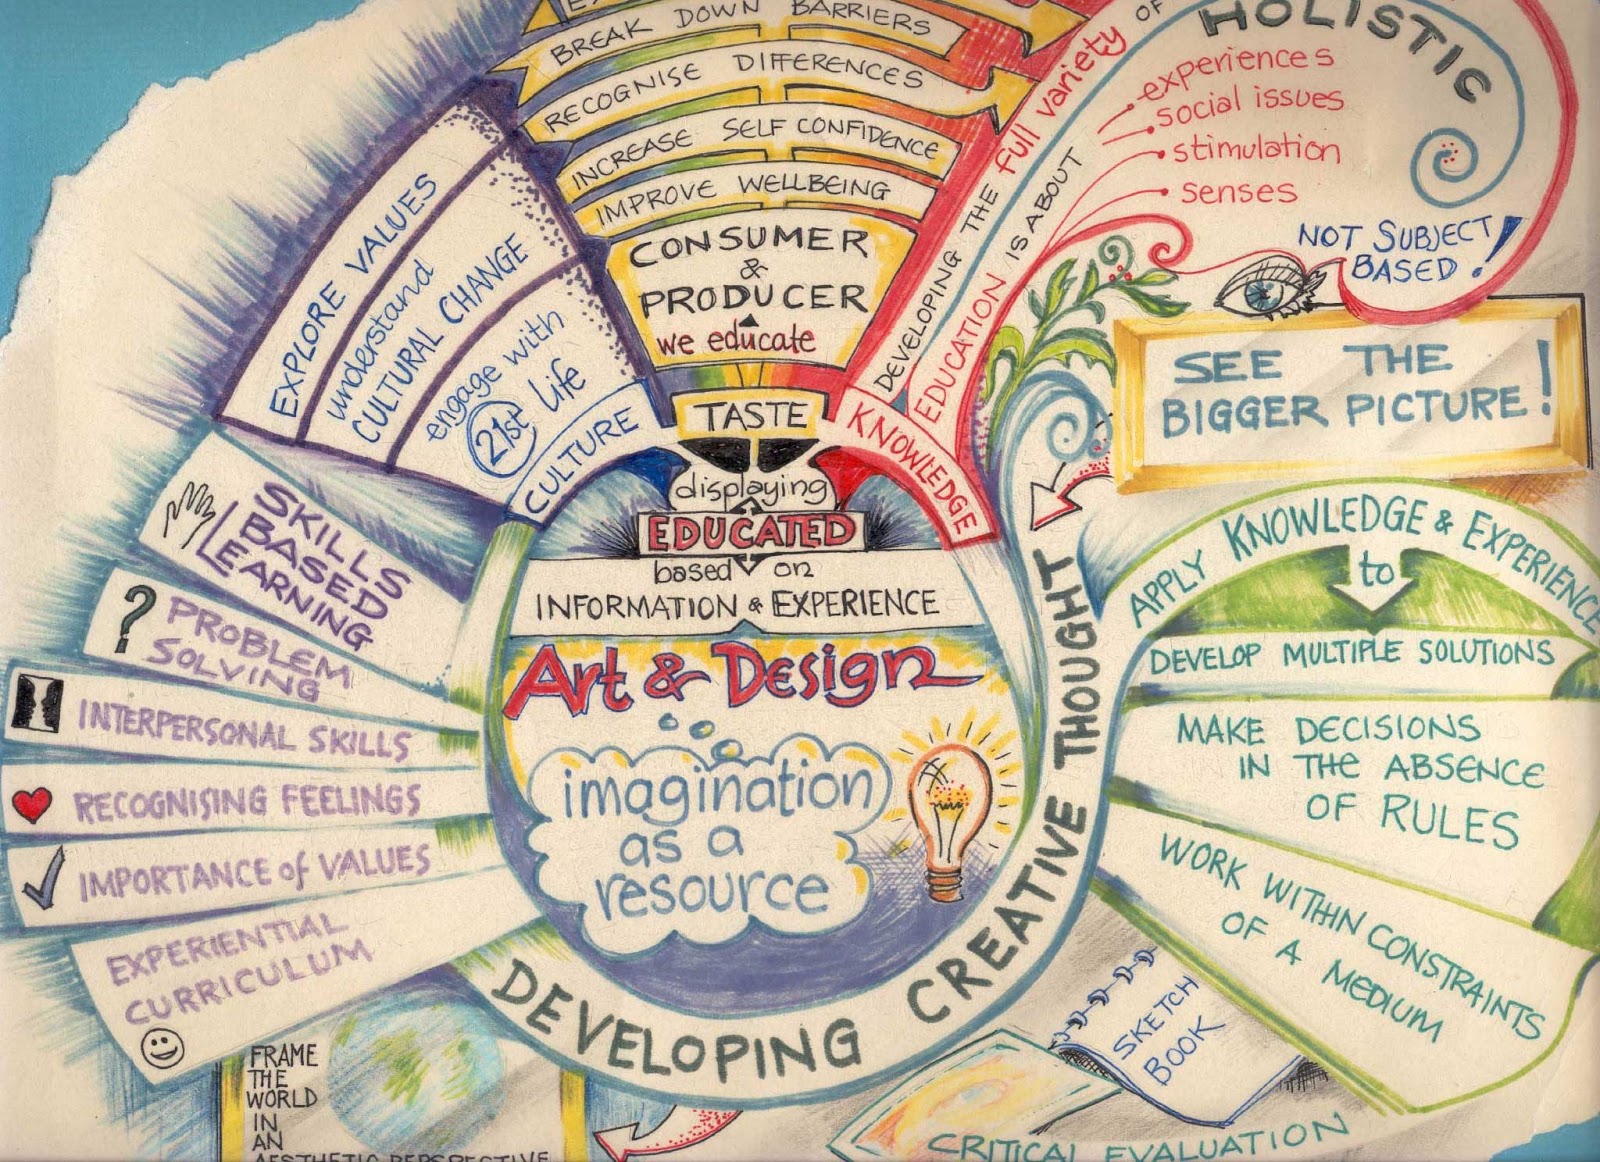 BREAK DOWN BARRIERS
RECOGNISE DIFFERENCES
INCREASE SELF CONFIDENCE
IMPROVE WELLBEING
CONSUMER
&
PRODUCER
we educate
TASTE
displaying
EDUCATED
based on
INFORMATION & EXPERIENCE
Art & Design
imagination
as a
resource
DEVELOPING CREATIVE THOUGHT
EXPLORE VALUES
understand
CULTURAL CHANGE
engage with
21st Life
CULTURE
KNOWLEDGE
DEVELOPING THE full variety OF
EDUCATION IS ABOUT
HOLISTIC
experiences
social issues
stimulation
senses
NOT SUBJECT
BASED!
SEE THE
BIGGER PICTURE!
APPLY KNOWLEDGE & EXPERIENCE
to
DEVELOP MULTIPLE SOLUTIONS
MAKE DECISIONS
IN THE ABSENCE
OF RULES
WORK WITHIN CONSTRAINTS
OF A MEDIUM
SKILLS
BASED
LEARNING
?
PROBLEM
SOLVING
INTERPERSONAL SKILLS
RECOGNISING FEELINGS
IMPORTANCE of VALUES
EXPERIENTIAL
CURRICULUM
FRAME
THE
WORLD
IN
AN
AESTHETIC PERSPECTIVE
SKETCH
BOOK
CRITICAL EVALUATION